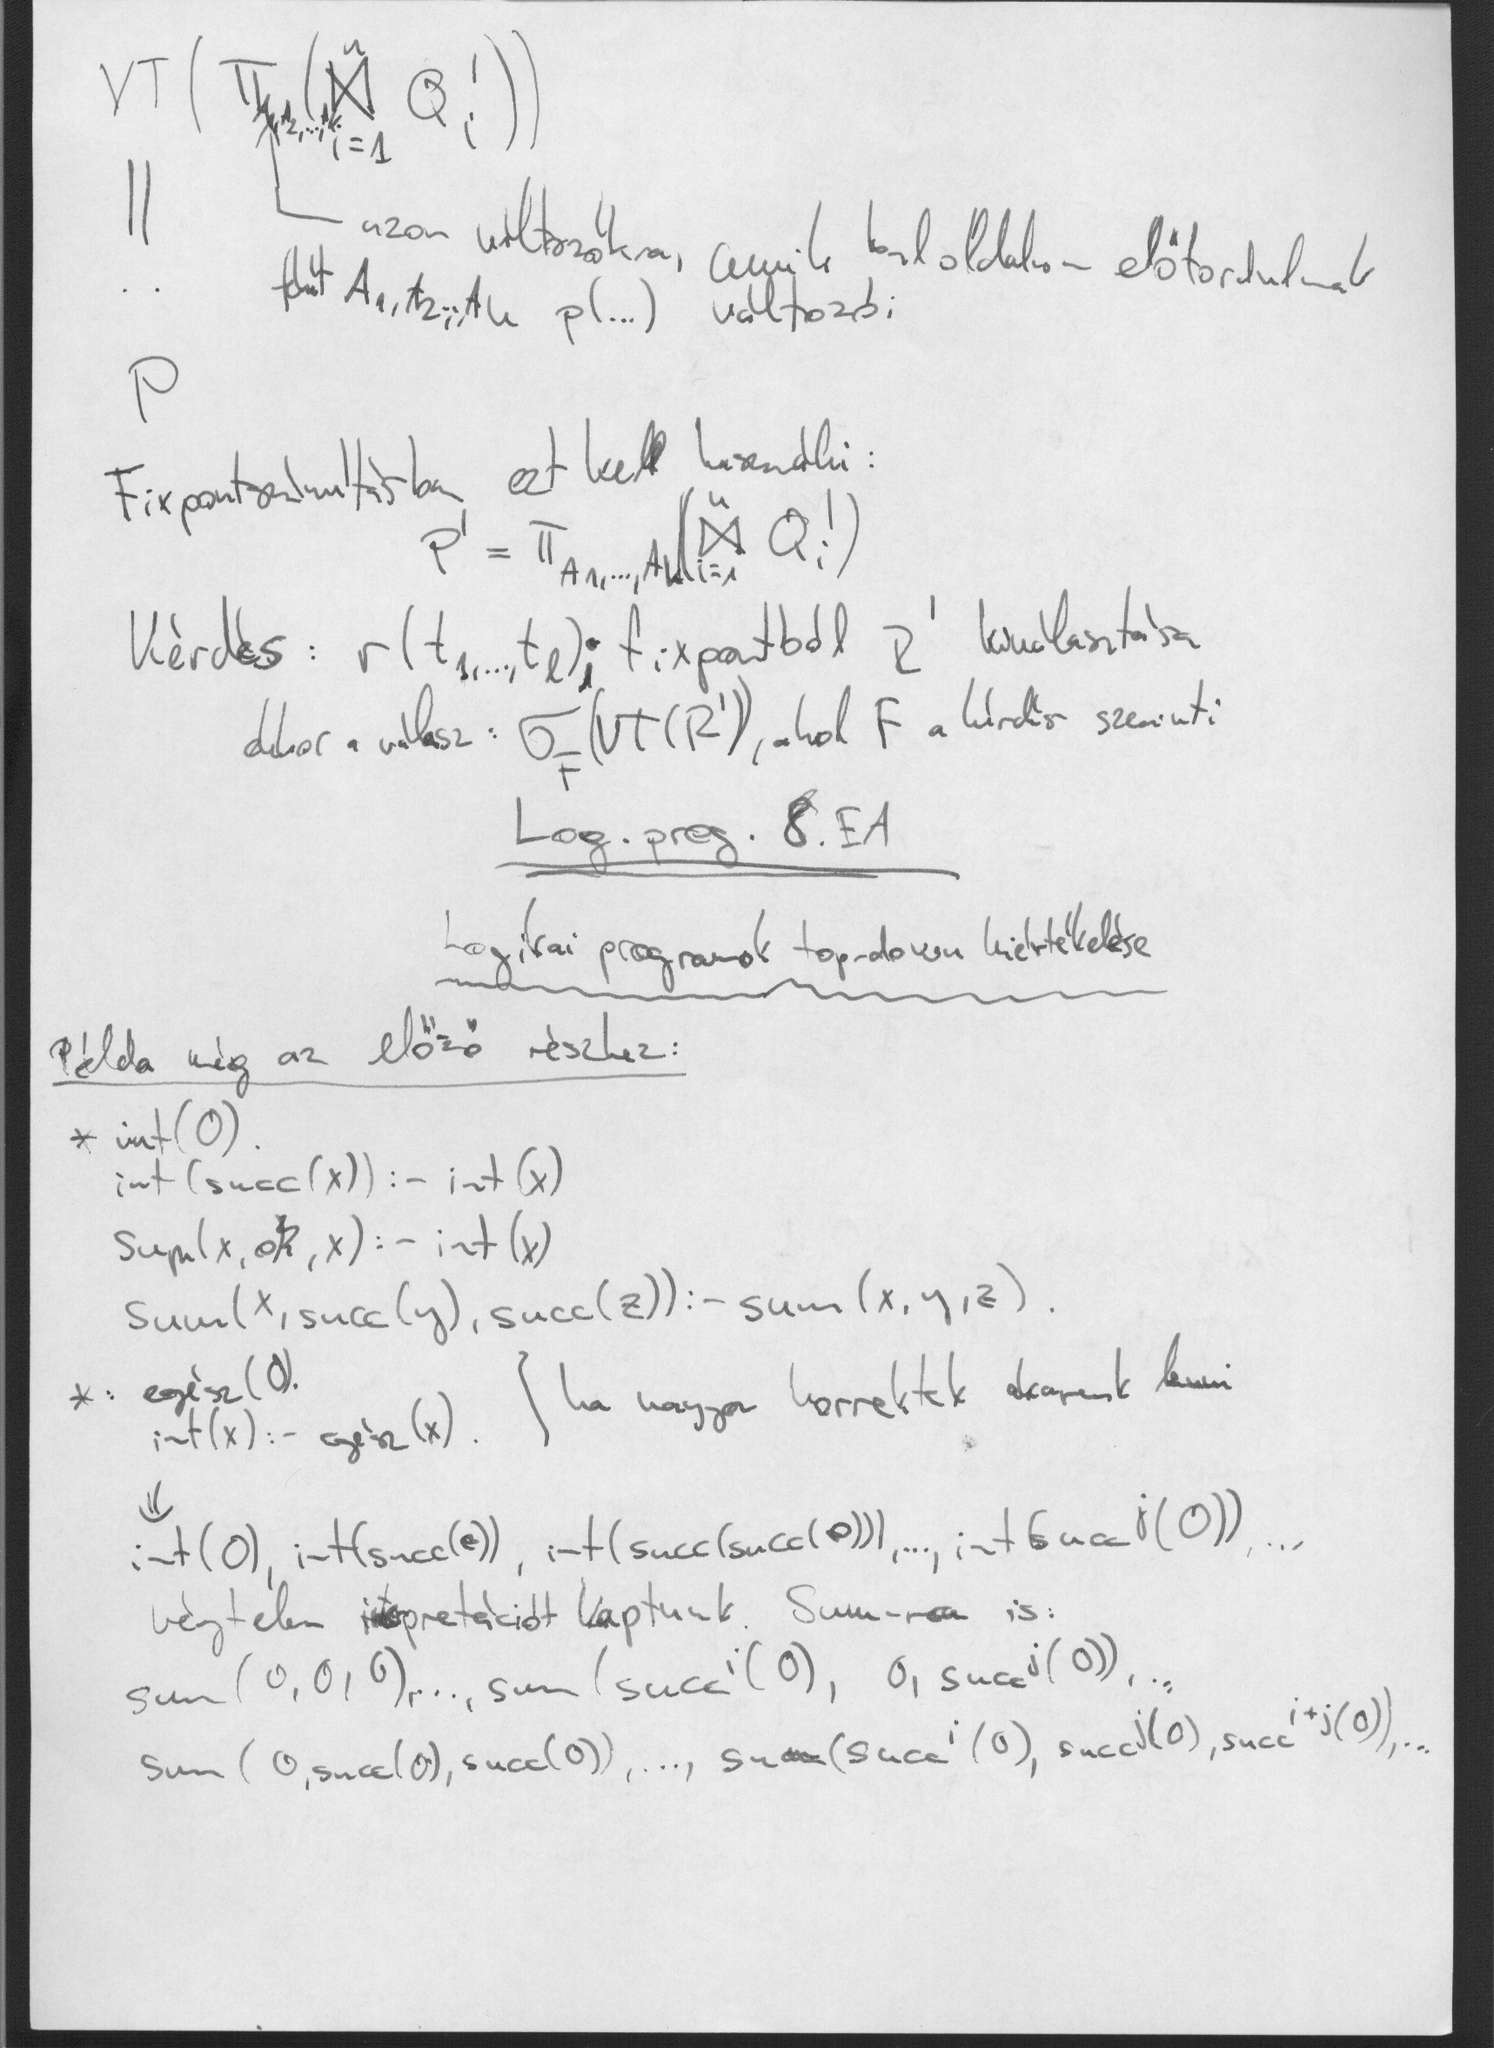 VT(π A1,A2,...,Ak (⋈ i=1 n Qi'))
|| azon változókra, amik baloldalon előfordulnak
.. A1,A2,...,Ak p(...) változói
P
Fixpontszámításban ezt kell használni:
P' = π A1,...,Ak (⋈ i=1 n Qi')
Kérdés: r(t1,...,tl); fixpontból R' kiválasztása
ekkor a válasz: σF(VT(R')), ahol F a kérdés szerinti
Log. prog. 8. EA
Logikai programok top-down kiértékelése
Példa még az előző részhez:
* int(0).
int(succ(x)):- int(x)
sum(x, 0, x):- int(x)
sum(x, succ(y), succ(z)):- sum(x, y, z).
*: egész(0).
int(x):- egész(x). } ha nagyon korrektek akarunk lenni
⇓
int(0), int(succ(0)), int(succ(succ(0))),..., int(succ^j(0)),...
végtelen interpretációt kaptunk. Sum-ra is:
sum(0,0,0),..., sum(succ^i(0), 0, succ^j(0)),...
sum(0,succ(0),succ(0)),..., sum(succ^i(0), succ^j(0), succ^i+j(0)),...